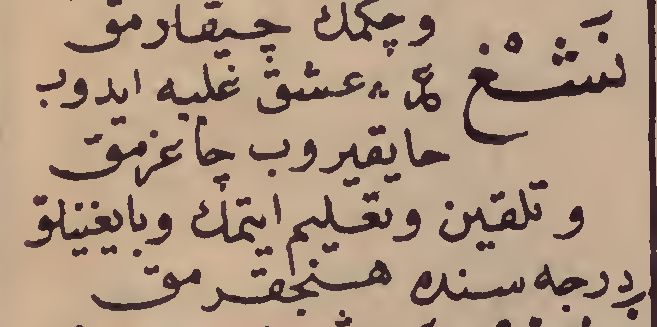 وچكمك چيقارمق
نشغ عشق غلبه ايدوب
حايقيروب چاغرمق
و تلقين وتعليم ايتمك وبايغينلق
بر درجه سنده هنجقرمق